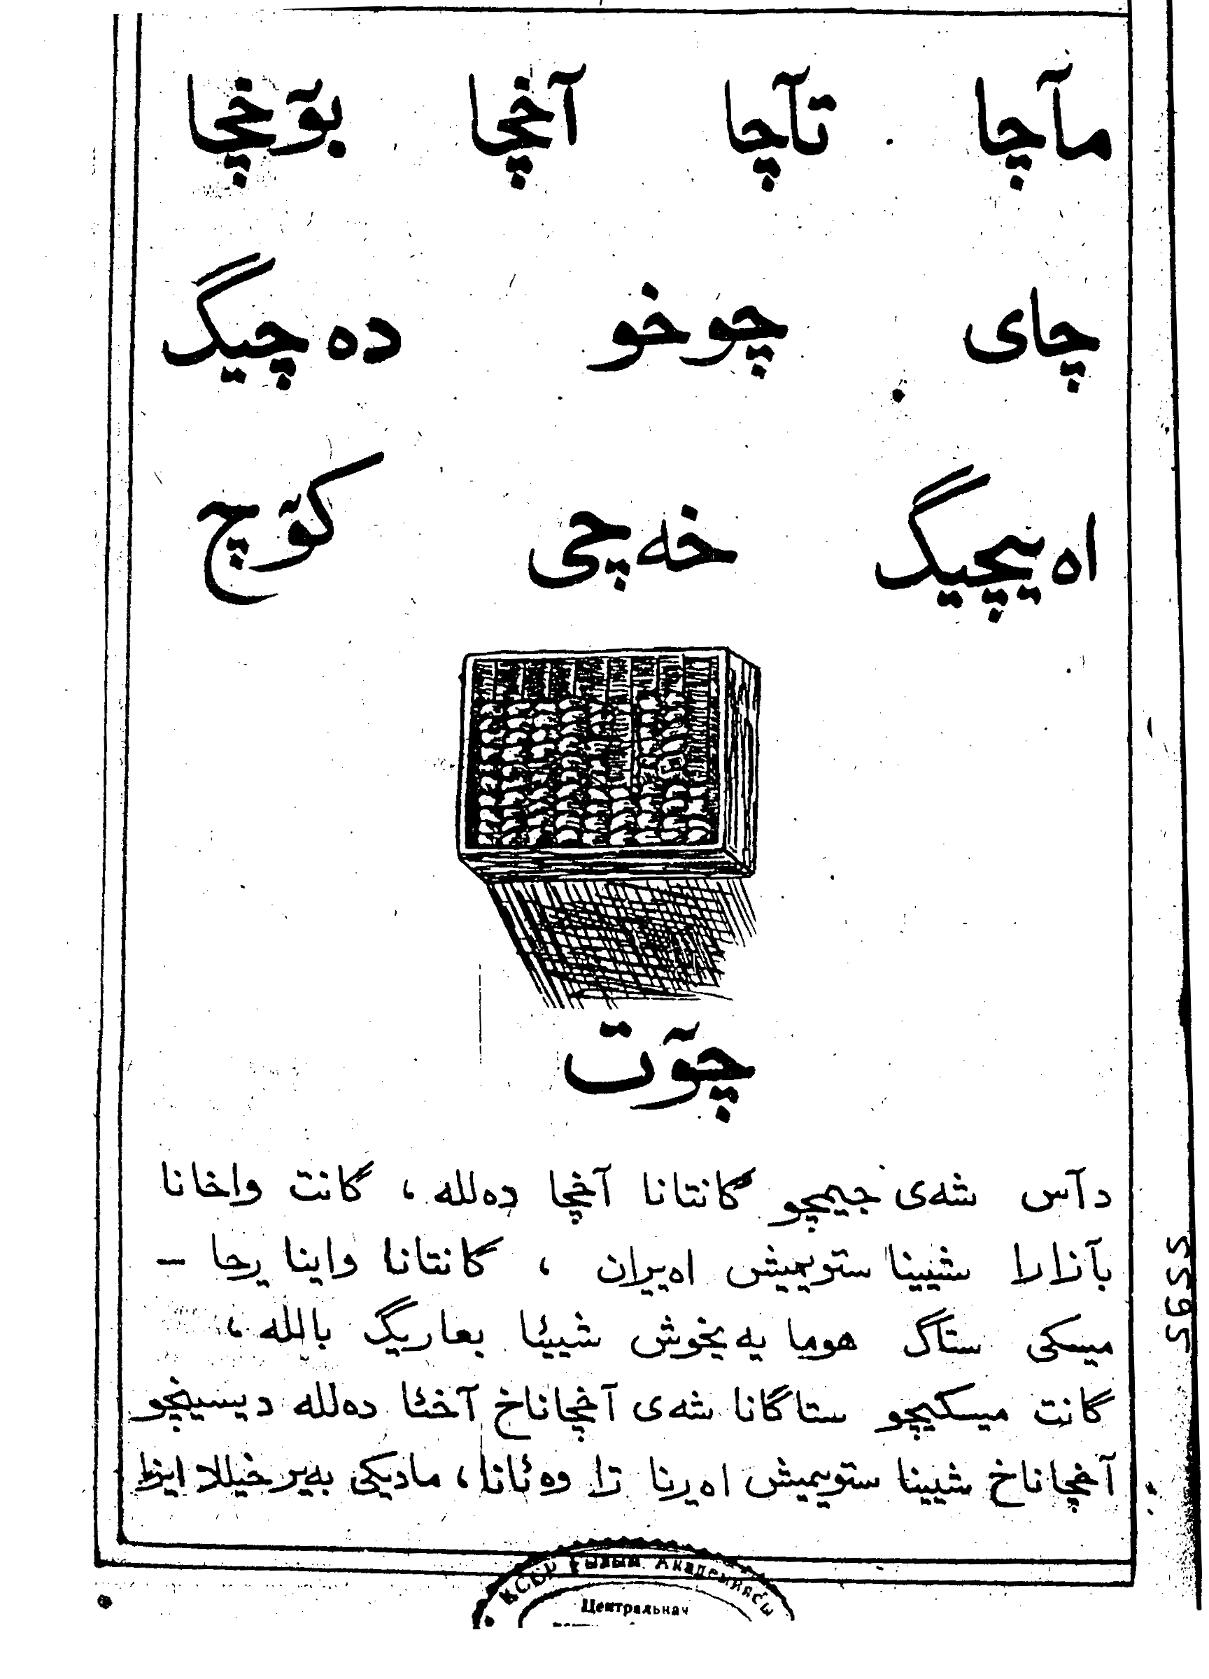 مآچا تآچا آخچا بوٓخچا
چای چوخو ده چیگ
اه یچیگ خه چی کوٓچ
چوٓت
دآس شه‌ی جیمچو گانتانا آخچا ده‌لله ، گانت واخانا
بآزارا شیینا ستویمیش اه‌یران ، گانتانا واینا یرحا —
میسکی ستآگ هوما یه یخوش شییئا بعاریگ باالله ،
گانت میسکیچو ستاگانا شه‌ی آخچاناخ آخئا ده‌لله دیسینچو
آخچاناخ شیینا ستویمیش اه‌یرنا تا وه‌ئانا ، مادیکی به‌یر خیللا ایزا
22592
КССР Ғылым. Академиясы
Центральная